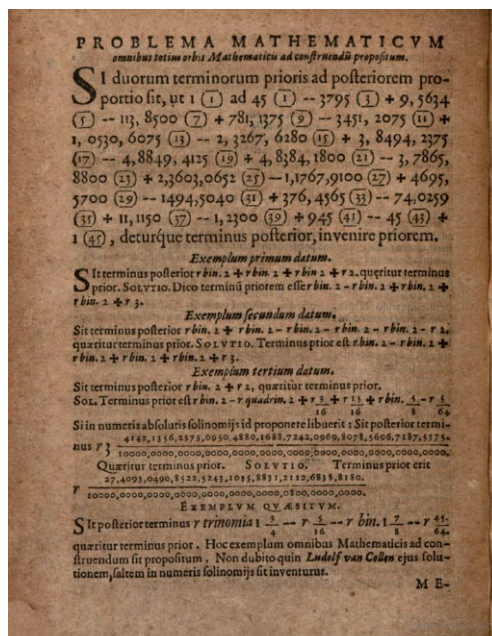 PROBLEMA MATHEMATICVM
omnibus totius orbis Mathematicis ad construendũ propositum.
SI duorum terminorum prioris ad posteriorem pro-
portio sit, ut 1 (1) ad 45 (1) -- 3795 (3) + 9, 5634
(5) -- 113, 8500 (7) + 781, 1375 (9) -- 3451, 2075 (11) +
1, 0530, 6075 (13) -- 2, 3267, 6280 (15) + 3, 8494, 2375
(17) -- 4,8849, 4125 (19) + 4,8384,1800 (21) -- 3, 7865,
8800 (23) + 2,3603,0652 (25) -- 1,1767,9100 (27) + 4695,
5700 (29) -- 1494,5040 (31) + 376, 4565 (33) -- 74,0259
(35) + 11,1150 (37) -- 1,2300 (39) + 945 (41) -- 45 (43) +
1 (45), deturque terminus posterior, invenire priorem.
Exemplum primum datum.
SIt terminus posterior r bin. 2 + r bin. 2 + r bin 2 + r 2. queritur terminus
prior. SOLVTIO. Dico terminũ priorem esse r bin. 2 - r bin. 2 + r bin. 2 +
r bin. 2 + r 3.
Exemplum secundum datum.
Sit terminus posterior r bin. 2 + r bin. 2 - r bin. 2 - r bin. 2 - r bin. 2 - r 2,
quæritur terminus prior. SOLVTIO. Terminus prior est r bin. 2 - r bin. 2 +
r bin. 2 + r bin. 2 + r bin. 2 + r 3.
Exemplum tertium datum.
Sit terminus posterior r bin. 2 + r 2, quæritur terminus prior.
SOL. Terminus prior est r bin. 2 - r quadrin. 2 + r 3/16 + r 15/16 + r bin. 5/8 - r 5/64
Si in numeris absolutis solinomijs id proponere libuerit : Sit posterior termi-
nus r 3
10000,0000,0000,0000,0000,0000,0000,0000,0000,0000,0000,0000.
Quæritur terminus prior. SOLVTIO. Terminus prior erit
r
EXEMPLVM QVÆSITVM.
SIt posterior terminus r trinomia 1 3/4 -- r 5/16 -- r bin. 1 7/8 -- r 45/64,
quæritur terminus prior. Hoc exemplum omnibus Mathematicis ad con-
struendum sit propositum. Non dubito quin Ludolf van Collen ejus solu-
tionem, saltem in numeris solinomijs sit inventurus.
ME-